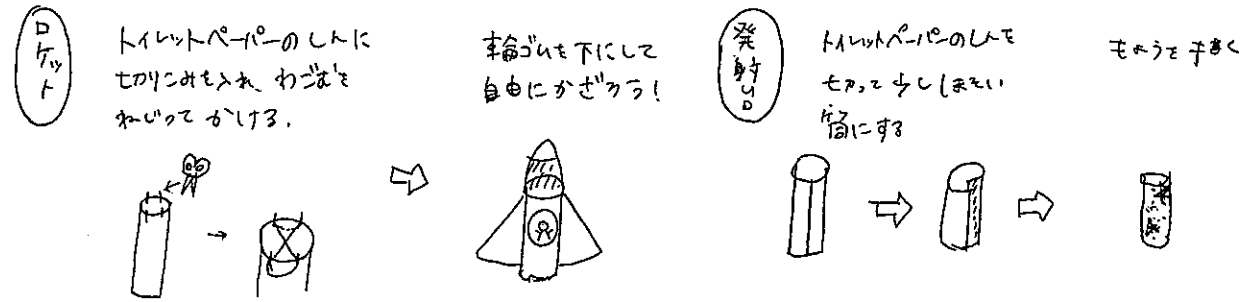 ロケット
トイレットペーパーのしんに
切りこみを入れ、わごむを
ねじって かける。
輪ゴムを下にして
自由にかざろう!
発射口
トイレットペーパーのしんを
切って 少しほそい
筒にする
もようを